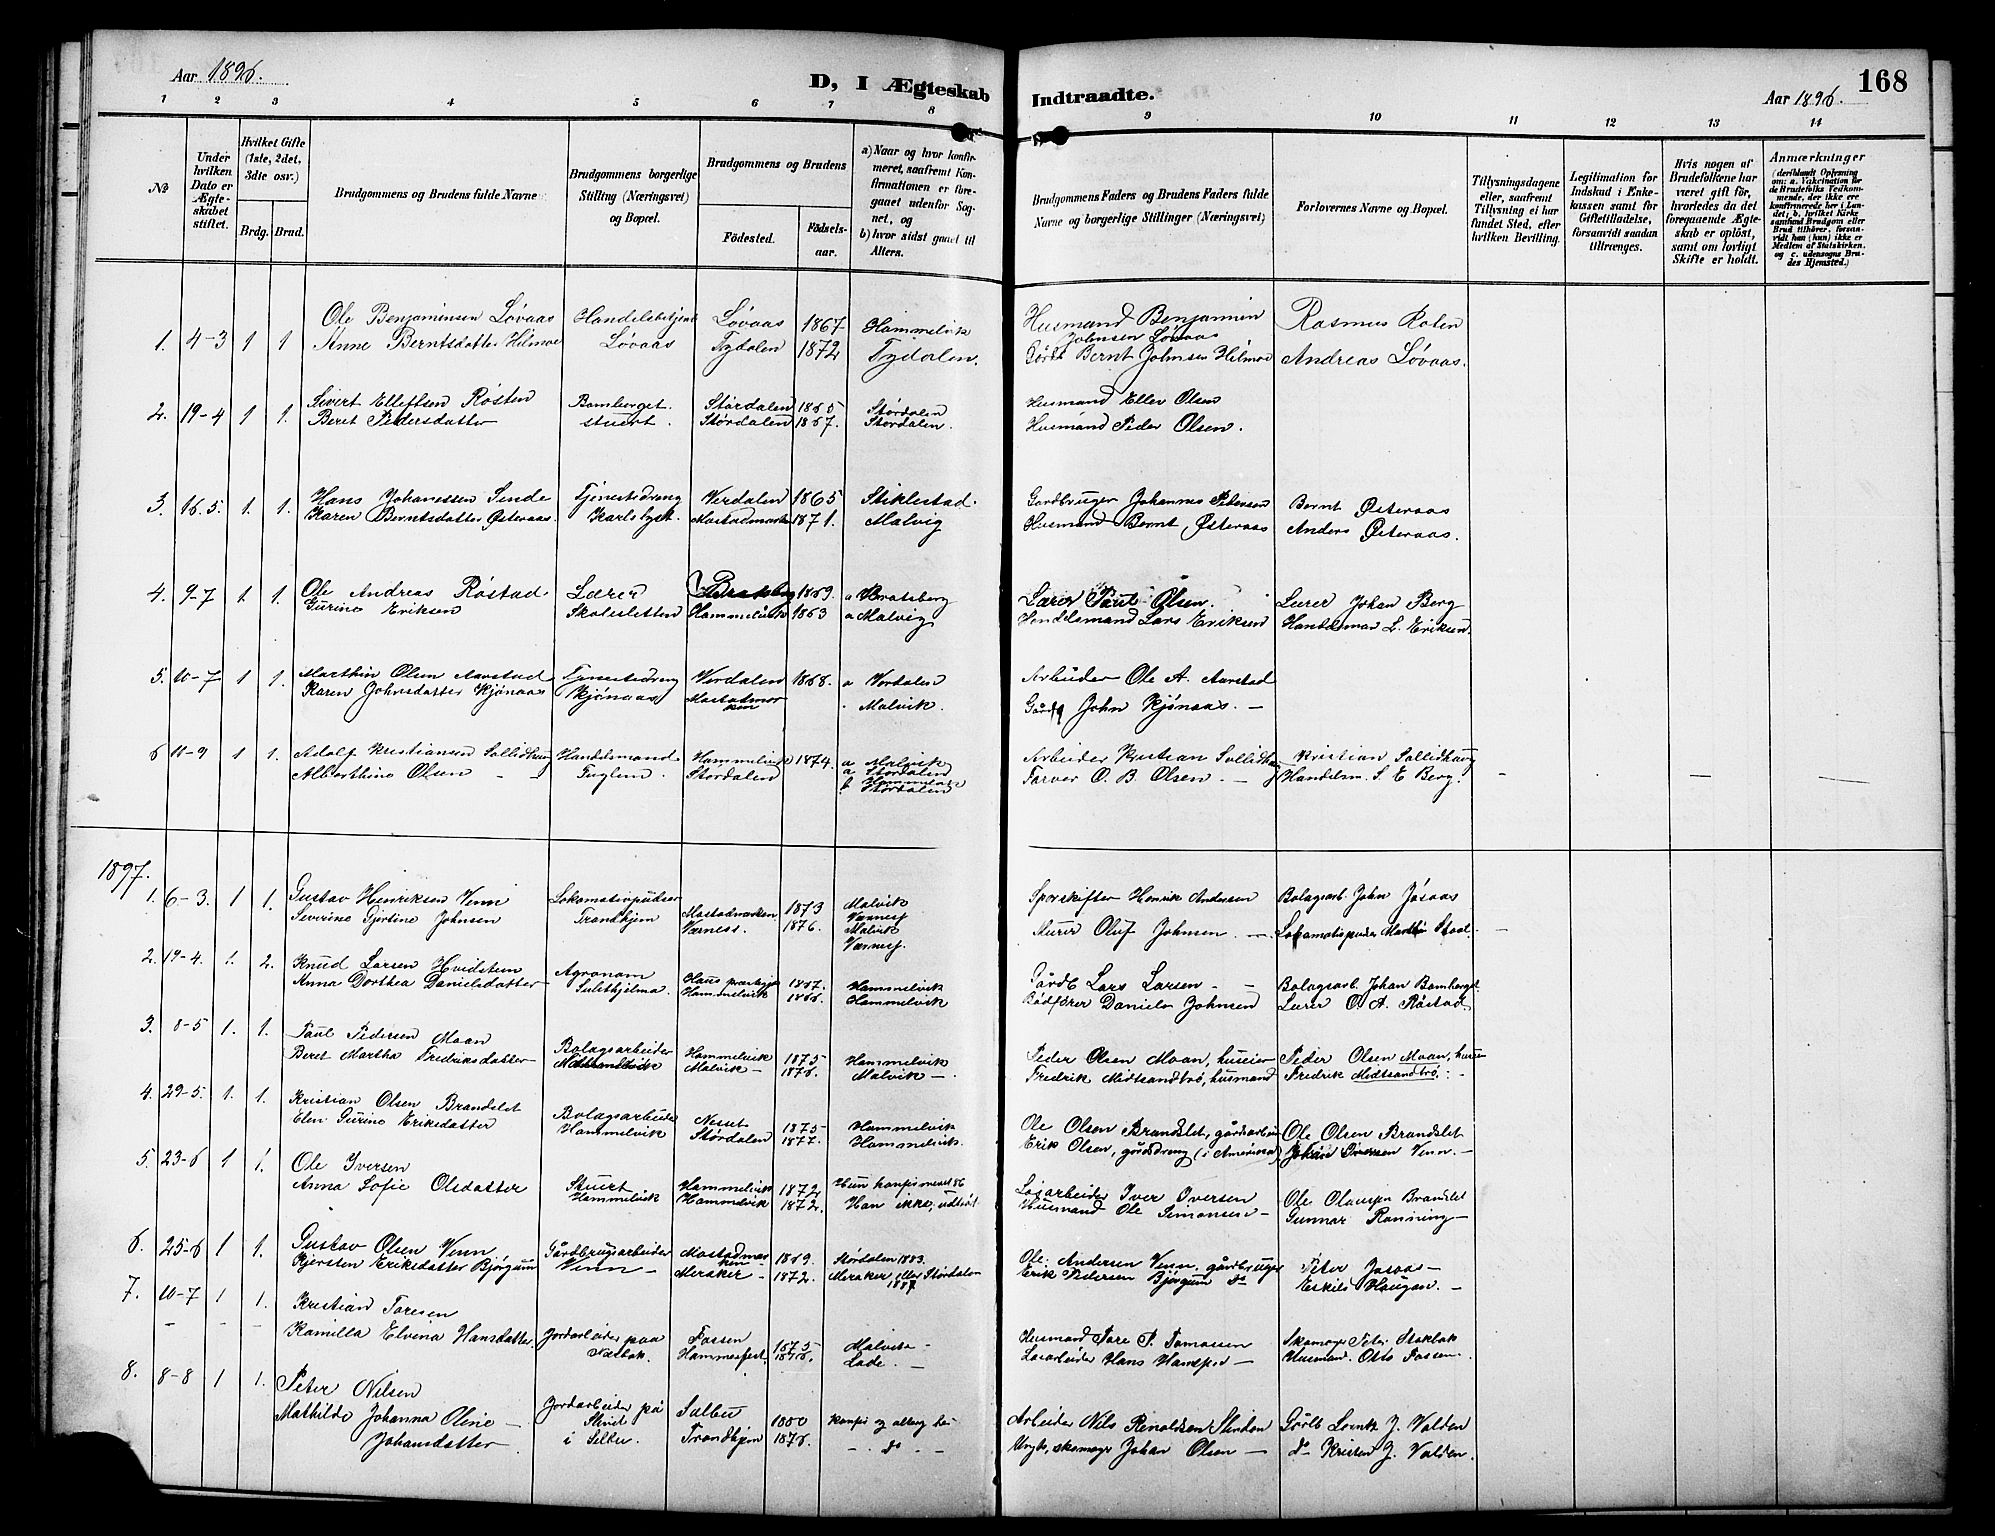 Aar 1896.
D, I Ægteskab Indtraadte.
Aar 1896.
168
1 2 3 4 5 6 7 8 9 10 11 12 13 14
No
Under hvilken Dato er Ægteskabet stiftet.
Hvilket Gifte (1ste, 2det, 3die osv.)
Brdg. Brud.
Brudgommens og Brudens fulde Navne
Brudgommens borgerlige Stilling (Næringsvei) og Bopæl.
Brudgommens og Brudens
Fødested.
Fødselsaar.
a) Naar og hvor konfirmeret, saafremt Konfirmationen er foregaaet udenfor Sognet, og
b) hvor sidst gaaet til Alters.
Brudgommens Faders og Brudens Faders fulde Navne og borgerlige Stillinger (Næringsvei)
Forlovernes Navne og Bopæl.
Tillysningsdagene eller, saafremt Tillysning ei har fundet Sted, efter hvilken Bevilling.
Legitimation for Indskud i Enkekassen samt for Giftetilladelse, forsaavidt saadan tiltrænges.
Hvis nogen af Brudefolkene har været gift før, hvorledes da det foregaaende Ægteskab er opløst, samt om lovligt Skifte er holdt.
Anmærkninger (deriblandt Oplysning om: a. Vakcination for de Brudefolks Vedkommende, der ikke ere konfirmerede her i Landet; b. hvilket Kirkesamfund Brudgom eller Brud tilhører, forsaavidt han (hun) ikke er Medlem af Statskirken, og c. udensogns Brudes Hjemsted.)
1. 4-3 1 1 Ole Benjaminsen Løvaas Handelsbetjent Løvaas 1867 Hammelvik Husmand Benjamin Johnsen Løvaas Rasmus Roten
Anne Berntsdatter Hilmoe Løvaas Tydalen 1872 Tydalen. Gårdb Bernt Johnsen Hilmoe Andreas Løvaas.
2. 19-4 1 1. Sivert Elleffsen Røsten Bomberget. Størdalen 1865 Størdalen Husmand Ellev Olsen
Beret Pedersdatter stuert. Størdalen 1867. Størdalen. Husmand Peder Olsen.
3. 16.5. 1. 1. Hans Johanessen Sende Tjenestedreng Verdalen 1865 Stiklestad. Gardbruger Johannes Pedersen Bernt Østeraas
Karen Berntsdatter Østeraas. Karlslyst. Mostadmarken 1871. Malvig Husmand Bernt Østeraas Anders Østeraas.
4. 9-7 1. 1. Ole Andreas Røstad Lærer Bratsberg 1869. a Bratsberg Lærer Paul Olsen. Lærer Johan Berg
Gurine Eriksen Skolesletten Hammelvik 1863 a Malvig Handelsmand Lars Eriksen Handelsman L. Eriksen.
5. 10-7 1 1. Marthin Olsen Aarstad Tjenestedreng Verdalen 1868. a Verdalen Arbeider Ole A. Aarstad
Karen Johnsdatter Kjønaas Kjønaas Mostadmarken Malvik. Gårdb John Kjønaas. —
6 11-9 1 1. Adolf Kristiansen Sollidhaug Handelsmand Hammelvik 1874. a Malvik Arbeider Kristian Sollidhaug Kristian Sollidhaug
Alberthine Olsen — Fuglem. Størdalen a Størdalen Farver O. B. Olsen. — Handelsm. S. E Berg.
b Hammelvik
Størdalen
1897.
1. 6-3. 1 1. Gustav Henriksen Venn Lokomativpudser Mostadmarken 1873 Malvik Sporskifter Henrik Andersen Bolagsarb. John Jøsaas
Severine Gjertine Johnsen Trondhjem Værness. 1876. Værnes Murer Oluf Johnsen. —. Lokomativpudser
Malvik
Værnes.
2. 19-4. 1. 2. Knud Larsen Hvidsteen Agronom Haus præstegj 1867. Hammelvik Gårdb Lars Larsen — Bolagsarb. Johan Bomberget.
Anna Dorthea Danielsdatter Sulithjelma. Hammelvik 1866. Hammelvik Daniel Johnsen Lærer O. A. Røstad.
3. 8-5 1. 1. Paul Pedersen Moan Bolagsarbeider Hammelvik 1875 Hammelvik Peder Olsen Moan, huseier Peder Olsen Moan,
Beret Martha Fredriksdatter Malvik — 1876. Malvik —. Fredrik Midtsandtrø, husmand Fredrik Midtsandtrø. —
4. 29-5. 1. 1. Kristian Olsen Brandslet Bolagsarbeider Neset 1875 Hammelvik Ole Olsen Brandslet, gårdarbeider Ole Olsen Brandslet
Elen Gurine Eriksdatter Hammelvik Størdalen 1877. Hammelvik. Erik Olsen, gårdsdreng (i Amerika) Johan Iversen Venn. —
5. 23-6 1 1. Ole Iversen Stuert Hammelvik 1872 Hun konfirmeret 86 Løsarbeider Iver Iversen Ole Brandslet
Anna Sofie Olsdatter Hammelvik Hammelvik 1872. Han ikke, udtrådt Husmand Ole Simonsen — Gunnar Rønning —
6. 25-6 1 1. Gustav Olsen Venn Gårdbrugsarbeider Mostadmarken 1869. Størdalen 1883. Ole Andersen Venn. gårdbruger Peter Jøsaas —
Kjersten Eriksdatter Bjørgum Venn — Meraker — 1872. Meraker eller Størdalen 1887 Erik Pedersen Bjørgum do Eskild Haugan. —
7. 10-7 1 1. Kristian Toresen Jordarbeider paa Fossen 1875 Malvik — Husmand Tore P. Tomassen Skomager Peter Stokbak
Kamilla Elvina Hansdatter. Hammerfest. 1876. Lade. — Løsarbeider Hans — Husmand. Otto Fossen.
8. 8-8 1 1. Peter Nilsen Jordarbeider på Selbu 1880 konfir og alterg. her Arbeider Nils Renoldsen Slindon Gårdb Lorntz J. Volden
Mathilde Johanna Oline — i Selbu. Trondhjem 1876. —. do — skomager Johan Olsen — do Kristen J. Volden.
Johansdatter.